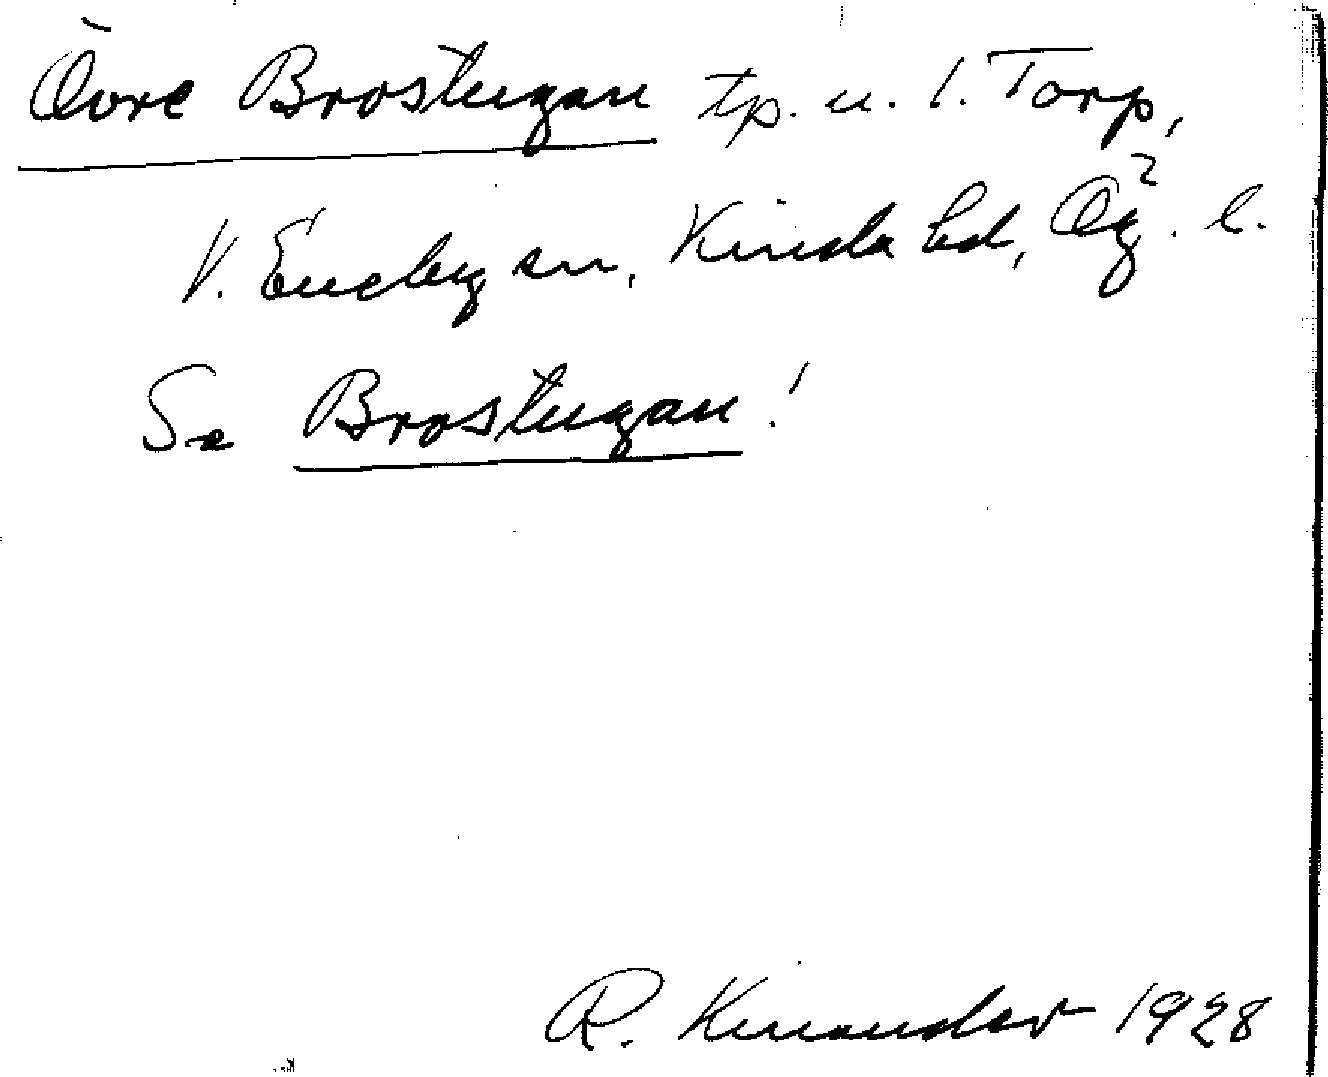 Övre Brostugan tp. u. 1. Torp,
V. Eneby sn, Kinda hd, Ög. l.
Se Brostugan!
R. Kinander 1928